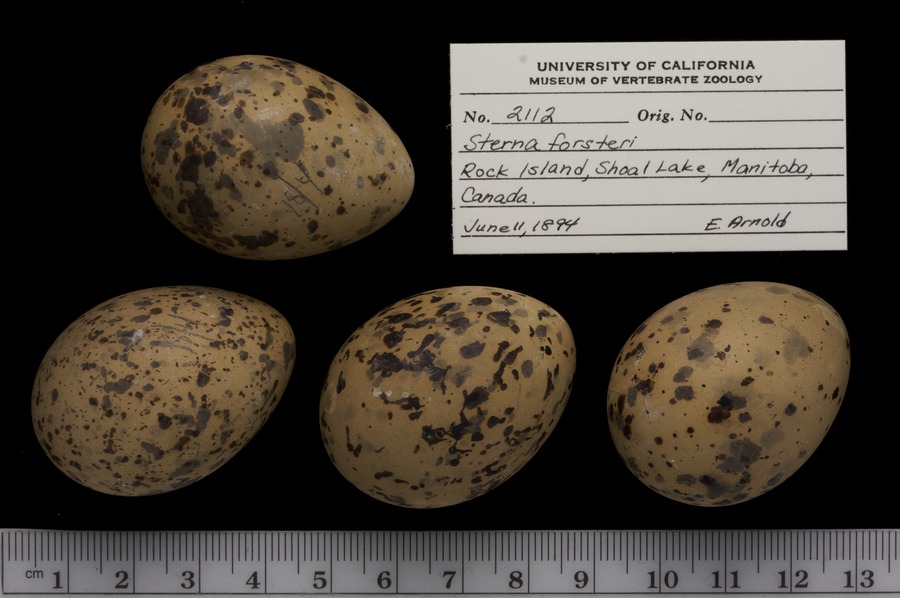 UNIVERSITY OF CALIFORNIA
MUSEUM OF VERTEBRATE ZOOLOGY
No. 2112 Orig. No.
Sterna forsteri
Rock Island, Shoal Lake, Manitoba,
Canada.
June 11, 1894 E. Arnold
cm 1 2 3 4 5 6 7 8 9 10 11 12 13